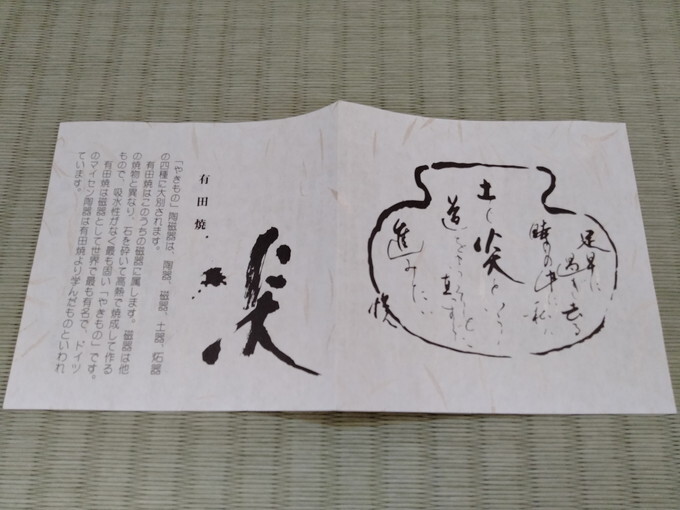 足早に
過ぎ去る
時の中で私は
土と炎という
道をまっしぐらに
真すぐ
進みたい
炎
有田焼。
「やきもの」陶磁器は、陶器、磁器、土器、炻器
の四種に大別されます。
有田焼はこのうちの磁器に属します。磁器は他
の焼物と異なり、石を砕いて高熱で焼成して作る
もので、吸水性がなく最も固い「やきもの」です。
有田焼は磁器として世界で最も有名で、ドイツ
のマイセン陶器は有田焼より学んだものといわれ
ています。